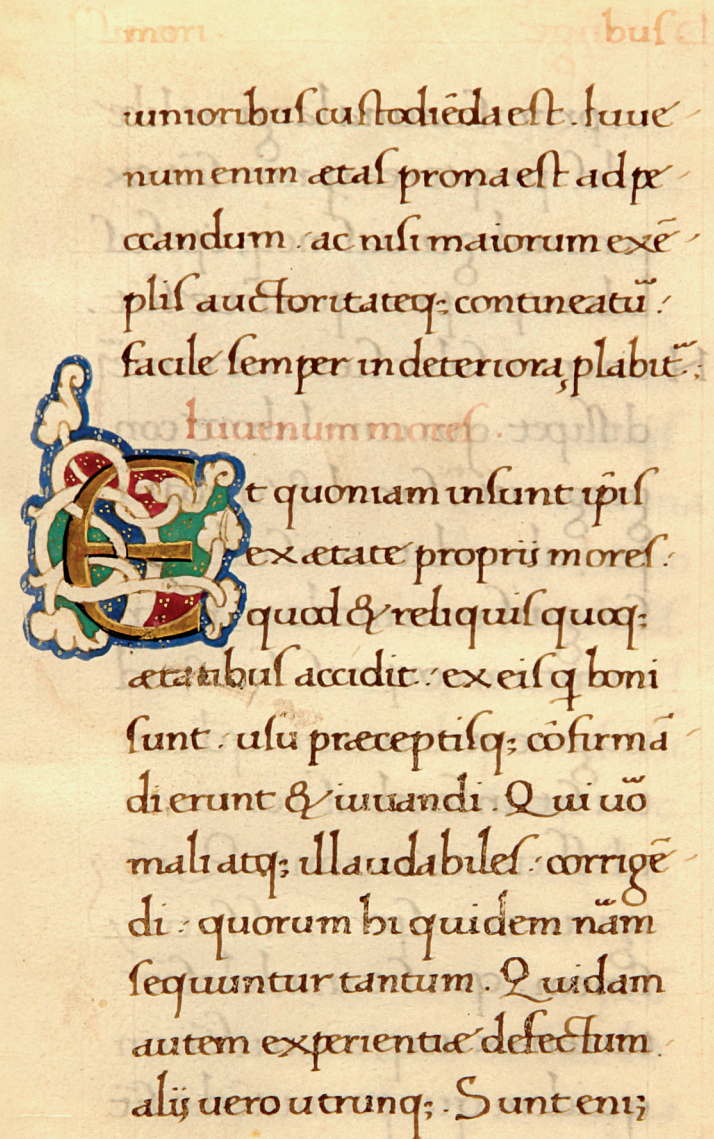 mori bus
iunioribus custodiēda est. Iuue
num enim ætas prona est ad pe
ccandum. ac nisi maiorum exē
plis auctoritateq; contineat᷑ur:
facile semper in deteriora ꝓlabit᷑:
Iuuenum mores.
Et quoniam insunt ip̄is
ex ætate proprii mores:
quod & reliquis quoq;
ætatibus accidit: ex eis q̄ boni
sunt. usu præceptisq; cōfirmā
di erunt & iuuandi. Qui uō
mali atq; illaudabiles: corrigē
di: quorum hi quidem nām
sequuntur tantum. Quidam
autem experientiæ defectum.
alij uero utrunq;. Sunt eni;